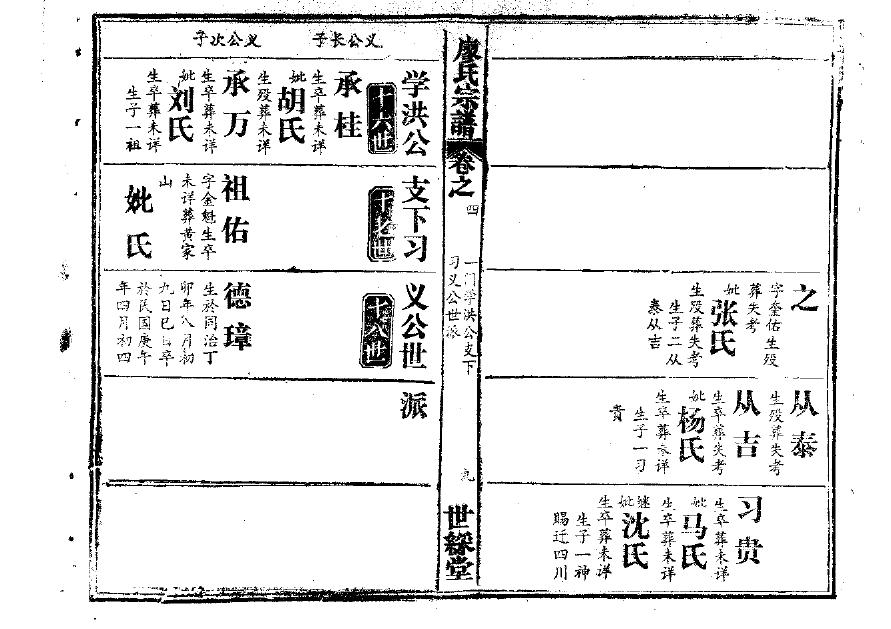 之
字奎佑生殁
葬失考
妣张氏
生殁葬失考
生子二从
泰从吉
从泰
生殁葬失考
从吉
生卒葬失考
妣杨氏
生卒葬未详
生子一习
贵
习贵
生卒葬未详
妣马氏
生卒葬未详
继妣沈氏
生卒葬未详
生子一神
赐迁四川
廖氏宗譜
卷之四
一门学洪公支下
习义公世派
九
世綵堂
学洪公支下习义公世派
义公长子
义公次子
十六世
承桂
生卒葬未详
妣胡氏
生殁葬未详
承万
生卒葬未详
妣刘氏
生卒葬未详
生子一祖
十七世
祖佑
字金魁生卒
未详葬黄家
山
妣氏
十八世
德璋
生於同治丁
卯年八月初
九日巳时卒
於民国庚午
年四月初四